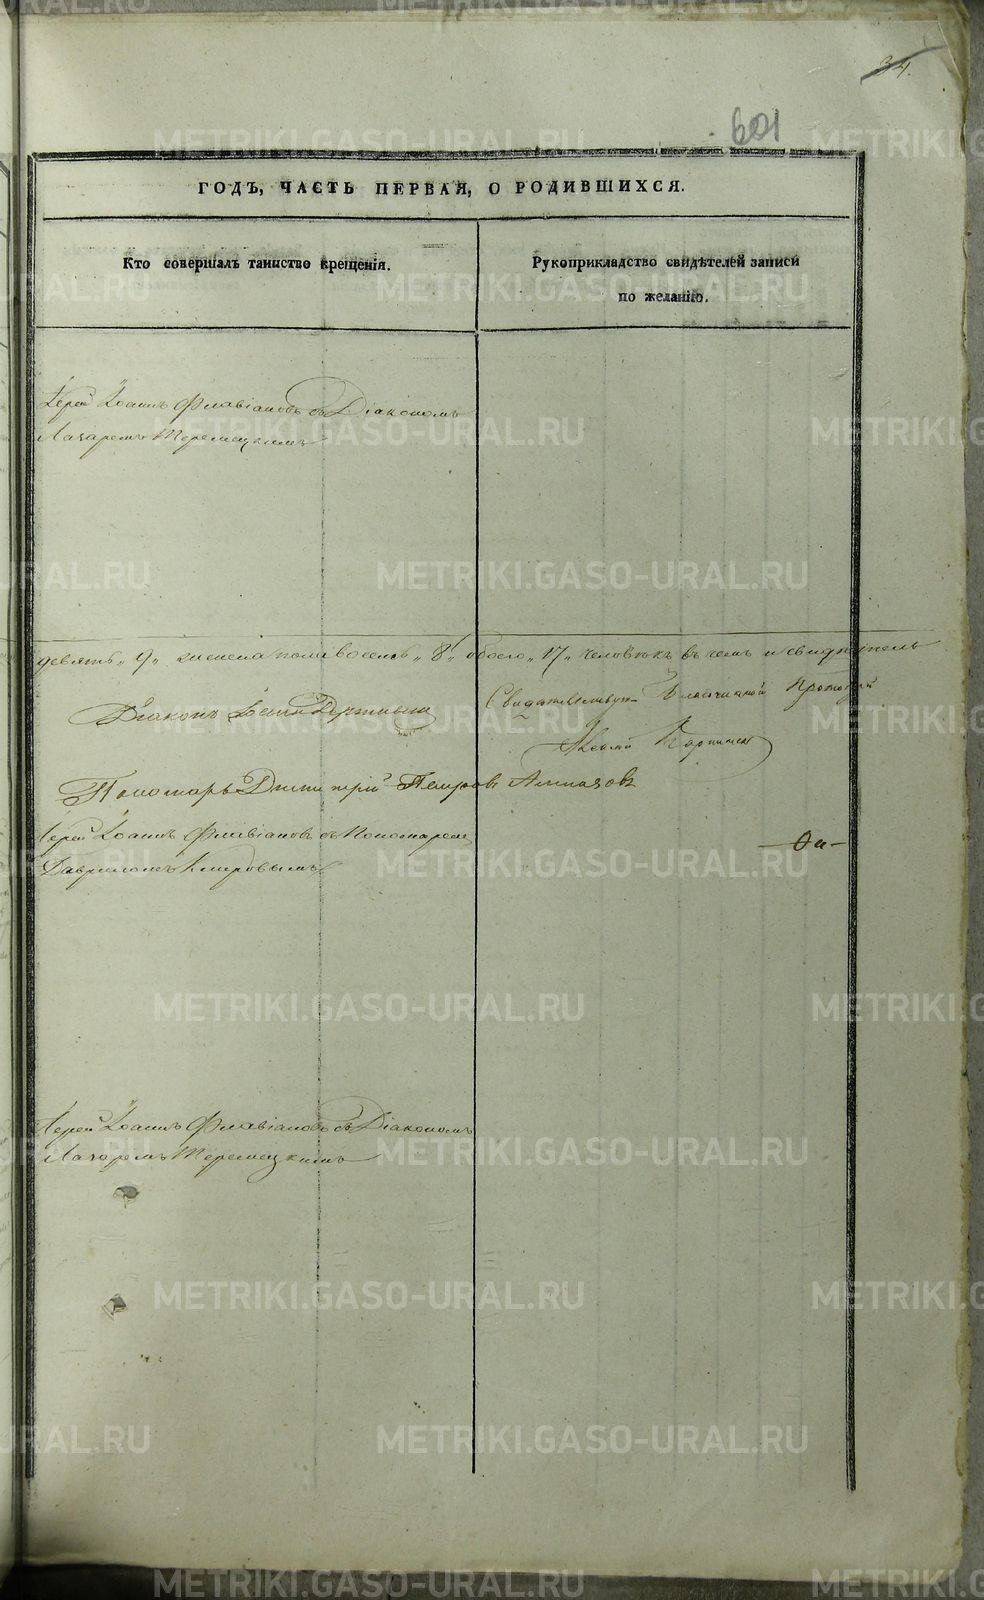 34.
601
ГОДЪ, ЧАСТЬ ПЕРВАЯ, О РОДИВШИХСЯ.
Кто совершалъ таинство крещенія.
Рукоприкладство свидѣтелей записи
по желанію.
Іерей Іоаннъ Флавіановъ съ Діакономъ
Лазаремъ
девять „9„ женска пола восемь „8„ обоего „17„ человѣкъ въ чемъ и свидѣтель
Діаконъ
Свидѣтельствуетъ Благочинной Протоіерей
Пономарь Димитрій Петровъ Алмазовъ
Іерей Іоаннъ Флавіановъ съ Пономаремъ
Гавріиломъ
Іерей Іоаннъ Флавіановъ съ Діакономъ
Лазаремъ
METRIKI.GASO-URAL.RU